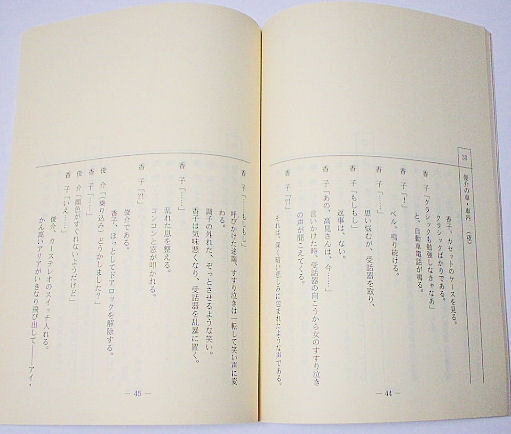 38　俊介の車・車内（夜）
香子、カセットのケースを見る。
クラシックばかりである。
香　子「クラシックも勉強しなきゃなあ」
と、自動車電話が鳴る。
香　子「！」
ベル、鳴り続ける。
香　子「……」
思い悩むが、受話器を取り、
香　子「もしもし」
返事は、ない。
香　子「あの、高見さんは、今……」
言いかけた時、受話器の向こうから女のすすり泣き
の声が聞こえてくる。
香　子「⁈」
それは、深く暗い悲しみに包まれたような声である。
— 44 —
香　子「……もしもし」
呼びかけた途端、すすり泣きは一転して笑い声に変
わる。
調子の外れた、ぞっとさせるような笑い。
香子は気味悪くなり、受話器を乱暴に置く。
香　子「……」
乱れた息を整える。
コンコンと窓が叩かれる。
香　子「⁈」
俊介である。
香子、ほっとしてドアロックを解除する。
俊　介「（乗り込み）どうかしました？」
香　子「……」
俊　介「顔色がすぐれないようだけど」
香　子「いえ……」
俊介、カーステレオのスイッチ入れる。
かん高いアリアがいきなり飛び出して——アイ・
— 45 —